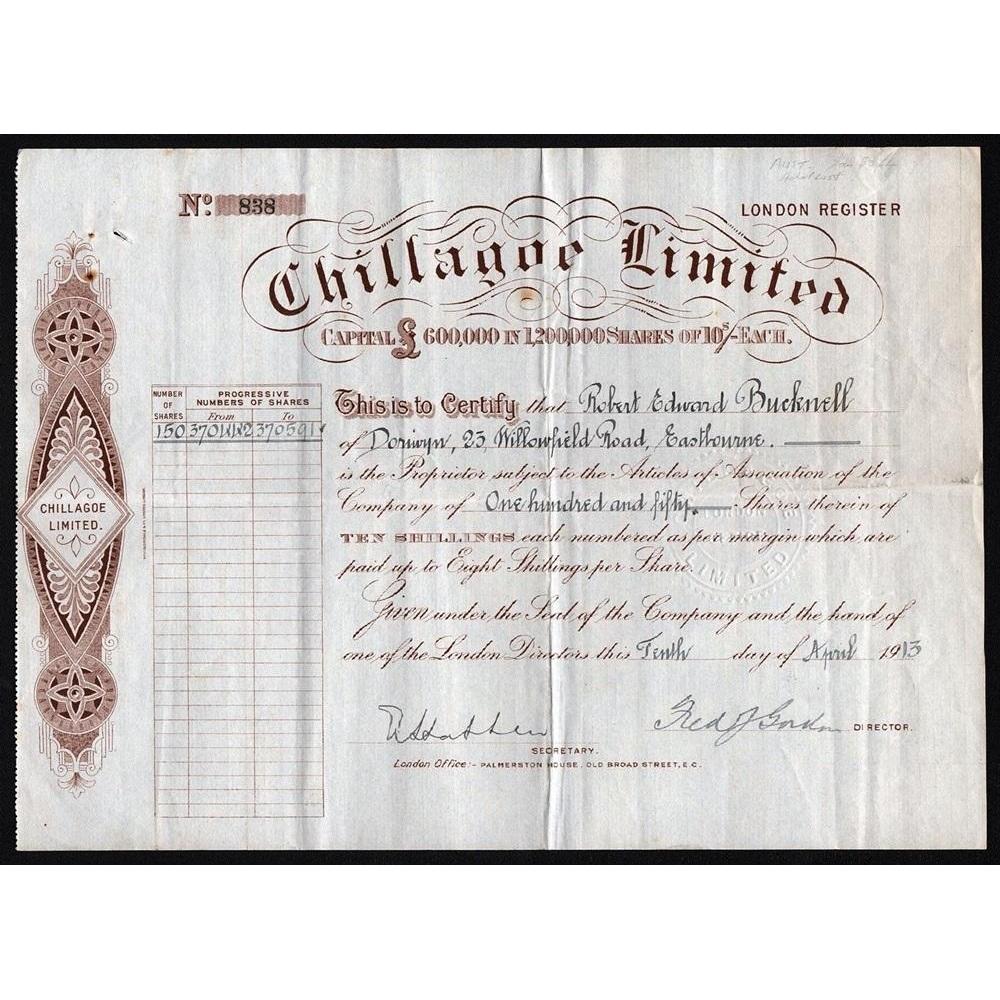 Nº 838
LONDON REGISTER
Chillagoe Limited
CAPITAL £ 600,000 IN 1,200,000 SHARES OF 10s/- EACH.
NUMBER OF SHARES
PROGRESSIVE NUMBERS OF SHARES
From To
150 370442 370591
CHILLAGOE LIMITED.
This is to Certify that Robert Edward Bucknell
of 23, Willowfield Road, Eastbourne.
is the Proprietor subject to the Articles of Association of the
Company of One hundred and fifty. Shares therein of
TEN SHILLINGS each numbered as per margin which are
paid up to Eight Shillings per Share.
LIMITED
Given under the Seal of the Company and the hand of
one of the London Directors this Tenth day of April 1913
Fred J Gordon DIRECTOR.
SECRETARY.
London Office:- PALMERSTON HOUSE, OLD BROAD STREET, E.C.